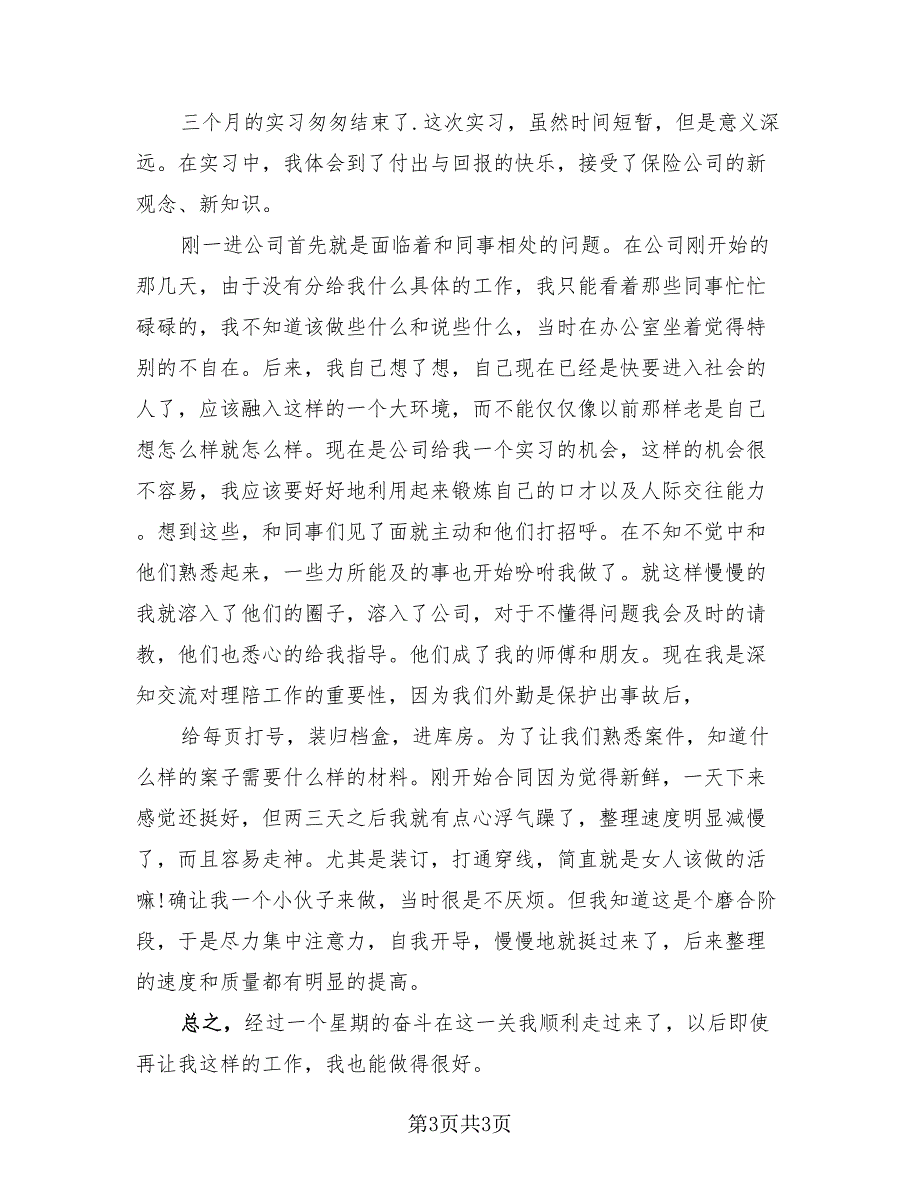 三个月的实习匆匆结束了.这次实习，虽然时间短暂，但是意义深
远。在实习中，我体会到了付出与回报的快乐，接受了保险公司的新
观念、新知识。
刚一进公司首先就是面临着和同事相处的问题。在公司刚开始的
那几天，由于没有分给我什么具体的工作，我只能看着那些同事忙忙
碌碌的，我不知道该做些什么和说些什么，当时在办公室坐着觉得特
别的不自在。后来，我自己想了想，自己现在已经是快要进入社会的
人了，应该融入这样的一个大环境，而不能仅仅像以前那样老是自己
想怎么样就怎么样。现在是公司给我一个实习的机会，这样的机会很
不容易，我应该要好好地利用起来锻炼自己的口才以及人际交往能力
。想到这些，和同事们见了面就主动和他们打招呼。在不知不觉中和
他们熟悉起来，一些力所能及的事也开始吩咐我做了。就这样慢慢的
我就溶入了他们的圈子，溶入了公司，对于不懂得问题我会及时的请
教，他们也悉心的给我指导。他们成了我的师傅和朋友。现在我是深
知交流对理陪工作的重要性，因为我们外勤是保护出事故后，
给每页打号，装归档盒，进库房。为了让我们熟悉案件，知道什
么样的案子需要什么样的材料。刚开始合同因为觉得新鲜，一天下来
感觉还挺好，但两三天之后我就有点心浮气躁了，整理速度明显减慢
了，而且容易走神。尤其是装订，打通穿线，简直就是女人该做的活
嘛!确让我一个小伙子来做，当时很是不厌烦。但我知道这是个磨合阶
段，于是尽力集中注意力，自我开导，慢慢地就挺过来了，后来整理
的速度和质量都有明显的提高。
总之，经过一个星期的奋斗在这一关我顺利走过来了，以后即使
再让我这样的工作，我也能做得很好。
第3页共3页